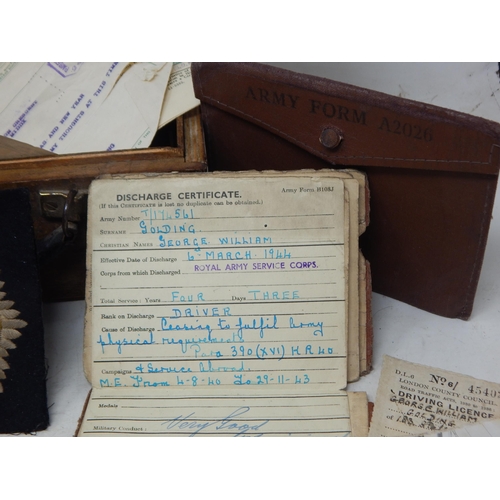 AND NEW YEAR
THOUGHTS AT THIS TIME
ARMY FORM A2026
DISCHARGE CERTIFICATE.
Army Form B108J
(If this CERTIFICATE is lost no duplicate can be obtained.)
Army Number T/174561
SURNAME GOLDING
CHRISTIAN NAMES GEORGE WILLIAM
Effective Date of Discharge 6th MARCH 1944
Corps from which Discharged ROYAL ARMY SERVICE CORPS.
Total Service: Years FOUR Days THREE
Rank on Discharge DRIVER
Cause of Discharge Ceasing to fulfil Army
physical requirements
Para 390 (XVI) K.R 40
Campaigns & Service Abroad
M.E. From 4-8-40 To 29-11-43
Medals
Military Conduct: Very Good
D.L.
LONDON COUNTY COUNCIL.
ROAD TRAFFIC ACTS,
DRIVING LICENCE
GEORGE WILLIAM
GOLDING